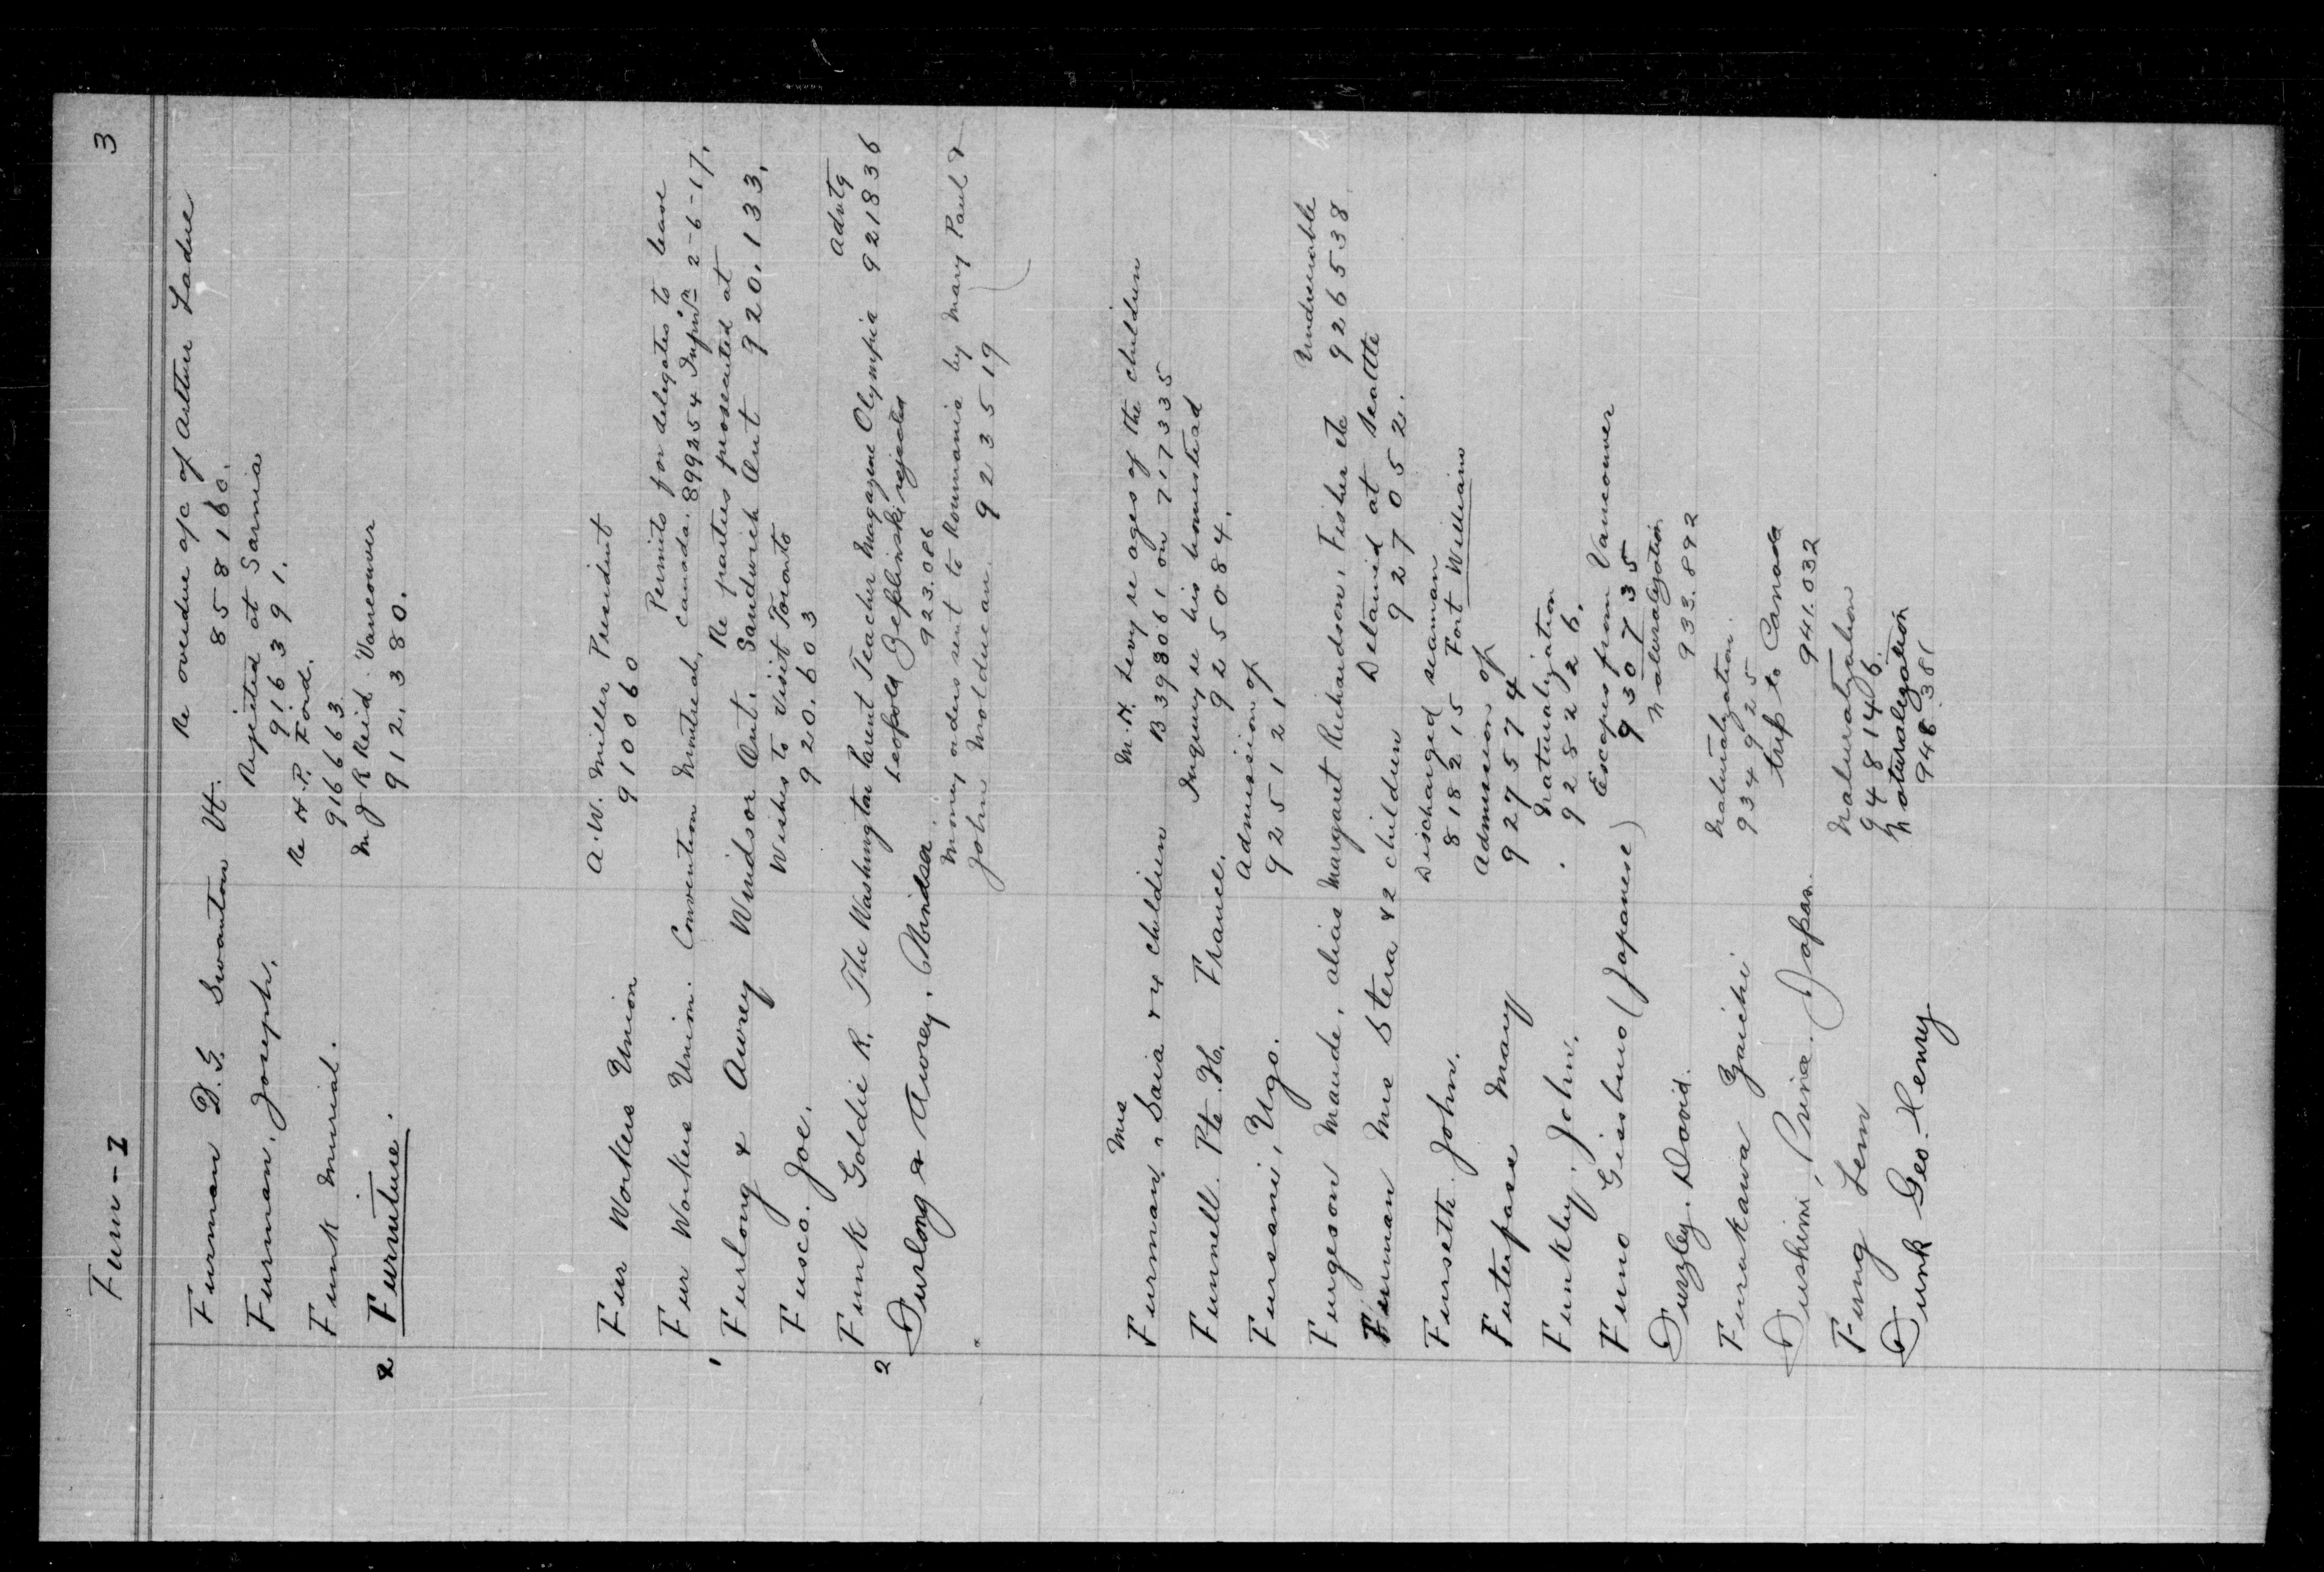 Fur - I
3
Furman D. G. Swanton Vt. Re overdue a/c of Arthur Ladue
858160.
Furman, Joseph. Rejected at Sarnia
916391.
Funk Murial. Re H. P. Ford.
916663
2 Furniture. M J R Reid Vancouver
912,380.
Fur Workers Union A. W. Miller President
910060
Fur Workers Union. Convention Montreal, Permits for delegates to leave
canada. 899254 2-6-17.
1 Furlong & Awrey Windsor Ont. Re parties prosecuted at
Sandwich Ont 920,133.
Fusco. Joe. Wishes to visit Toronto
920.603
Funk Goldie R. The Washington Parent Teacher Magazine Olympia Advtg 921836
2 Furlong & Awrey, Windsor. Leopold Zeplinski, rejected
923.086
Money orders sent to Roumania by Mary Paul &
John Molducan. 923519
Mrs
Furman, Saia & 4 children M. H. Levy re ages of the children
B398061 on 717335
Funnell. Pte. H. France. Inquiry re his homestead
925084.
Fursani, Ugo. Admission of
925121
Furgeson Maude, alias Margaret Richardson, Fisher etc Undesirable
926538
Furman Mrs Stera & 2 children Detained at Seattle
927052.
Furseth John. Discharged seaman
818215 Fort William
Futerfase Mary Admission of
927574
Funkley. John. Naturalization
928226.
Funo Giisbuo (Japanese) Escapes from Vancouver
930735
Furzley. David. Naturalization
933.892
Furukawa Zaichi Naturalization.
934925
Fushimi, Prince. Japan. trip to Canada
941.032
Fung Lenn Naturalization
948146.
Funk Geo. Henry Naturalization
948.381